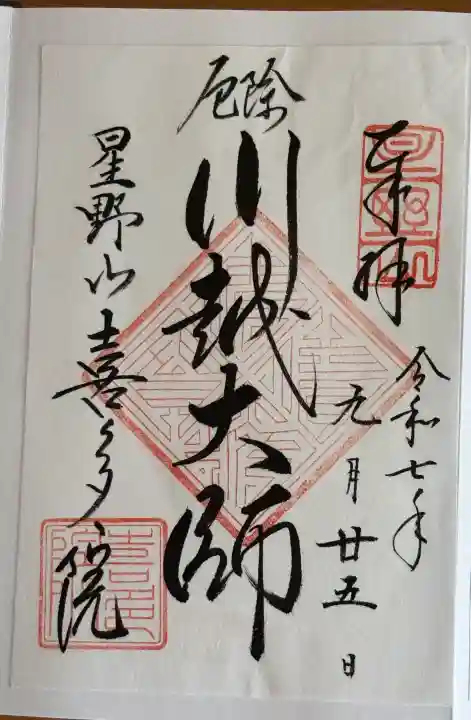 奉拝
令和七年
九月廿五日
厄除
川越大師
星野山喜多院
喜多院